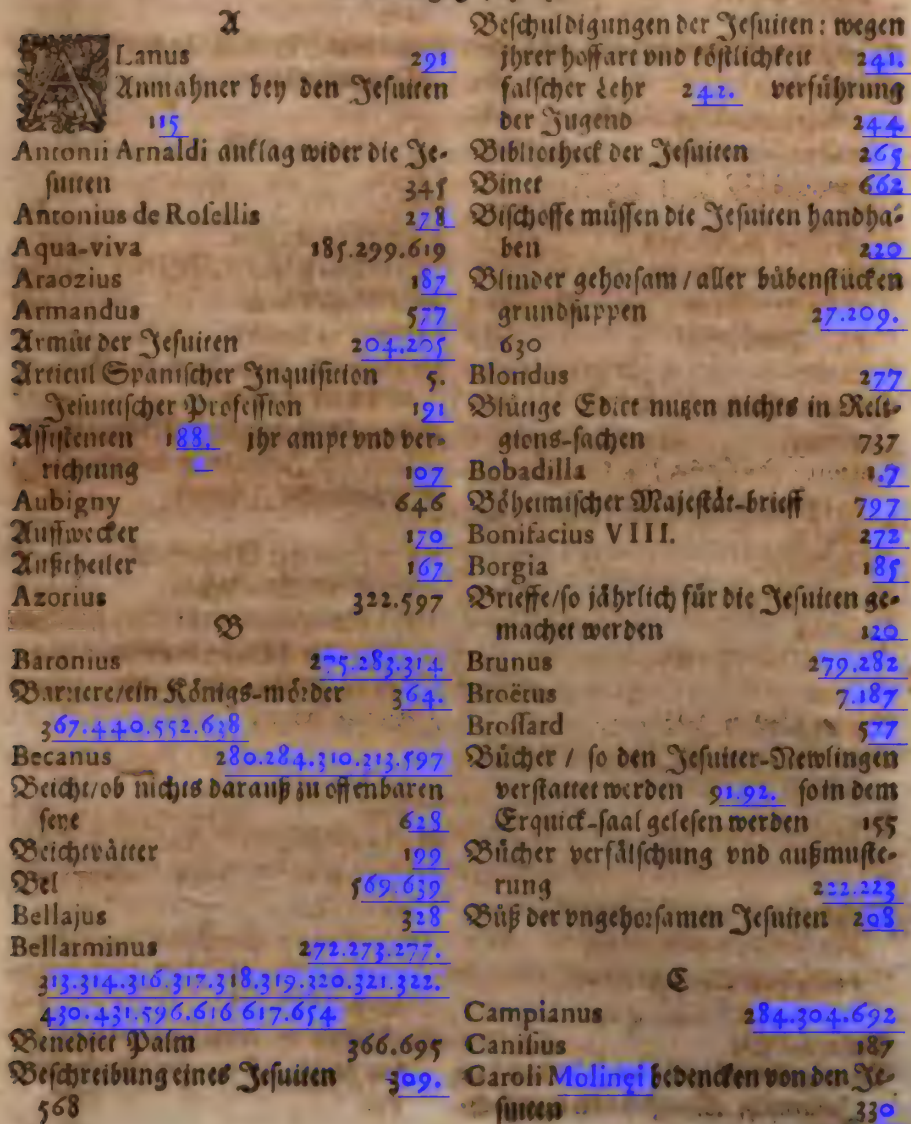 A
ALanus 291
Anmahner bey den Jesuiten
115
Antonii Arnaldi anklag wider die Je-
suiten 345
Antonius de Rosellis 278
Aqua-viva 185.299.619
Araozius 187
Armandus 577
Armůt der Jesuiten 204.205
Articul Spanischer Inquisition 5.
Jesuitischer Profession 191
Assistenten 188. jhr ampt vnd ver-
richtung 107
Aubigny 646
Auffwecker 170
Außtheiler 167
Azorius 322.597
B
Baronius 275.283.314
Barriere/ein Königs-mörder 364.
367.440.552.638
Becanus 280.284.310.313.597
Beicht/ob nichts darauß zu offenbaren
seye 628
Beichtvätter 199
Bel 569.639
Bellajus 328
Bellarminus 272.273.277.
313.314.316.317.318.319.320.321.322.
430.431.596.616 617.654
Benedict Palm 366.695
Beschreibung eines Jesuiten 309.
568
Beschuldigungen der Jesuiten: wegen
jhrer hoffart vnd köstlichkeit 241.
falscher Lehr 242. verführung
der Jugend 244
Bibliotheck der Jesuiten 265
Binet 662
Bischoffe müssen die Jesuiten handha-
ben 220
Blinder gehorsam / aller bübenstücken
grundsuppen 27.209.
630
Blondus 277
Blůtige Edict nutzen nichts in Reli-
gions-sachen 737
Bobadilla 1.7
Böheimischer Majestät-brieff 797
Bonifacius VIII. 272
Borgia 185
Brieffe/so jährlich für die Jesuiten ge-
machet werden 120
Brunus 279.282
Broëtus 7.187
Brossard 577
Bücher / so den Jesuiter-Newlingen
verstattet werden 91.92. so in dem
Erquick-saal gelesen werden 155
Bücher verfälschung vnd außmuste-
rung 222.223
Bůß der vngehorsamen Jesuiten 208
C
Campianus 284.304.692
Canisius 187
Caroli Molinęi bedencken von den Je-
suiten 330